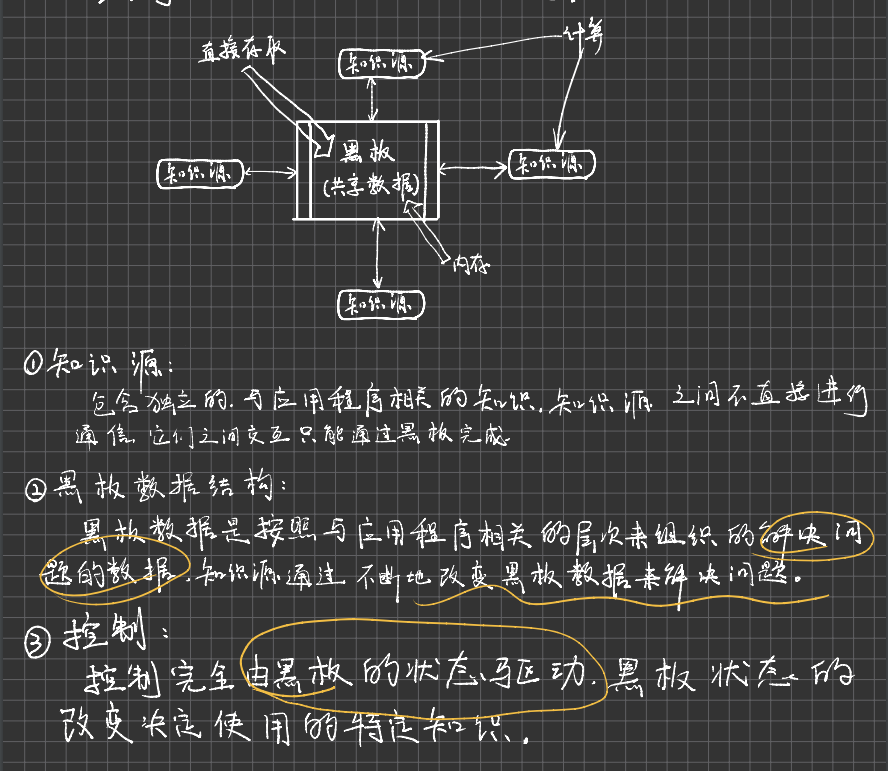 直接存取
知识源
计算
黑板
(共享数据)
知识源
知识源
内存
知识源
①知识源:
包含独立的.与应用程序相关的知识.知识源之间不直接进行
通信它们之间交互只能通过黑板完成
②黑板数据结构:
黑板数据是按照与应用程序相关的层次来组织的解决问
题的数据.知识源通过不断地改变黑板数据来解决问题。
③控制:
控制完全由黑板的状态驱动.黑板状态的
改变决定使用的特定知识.